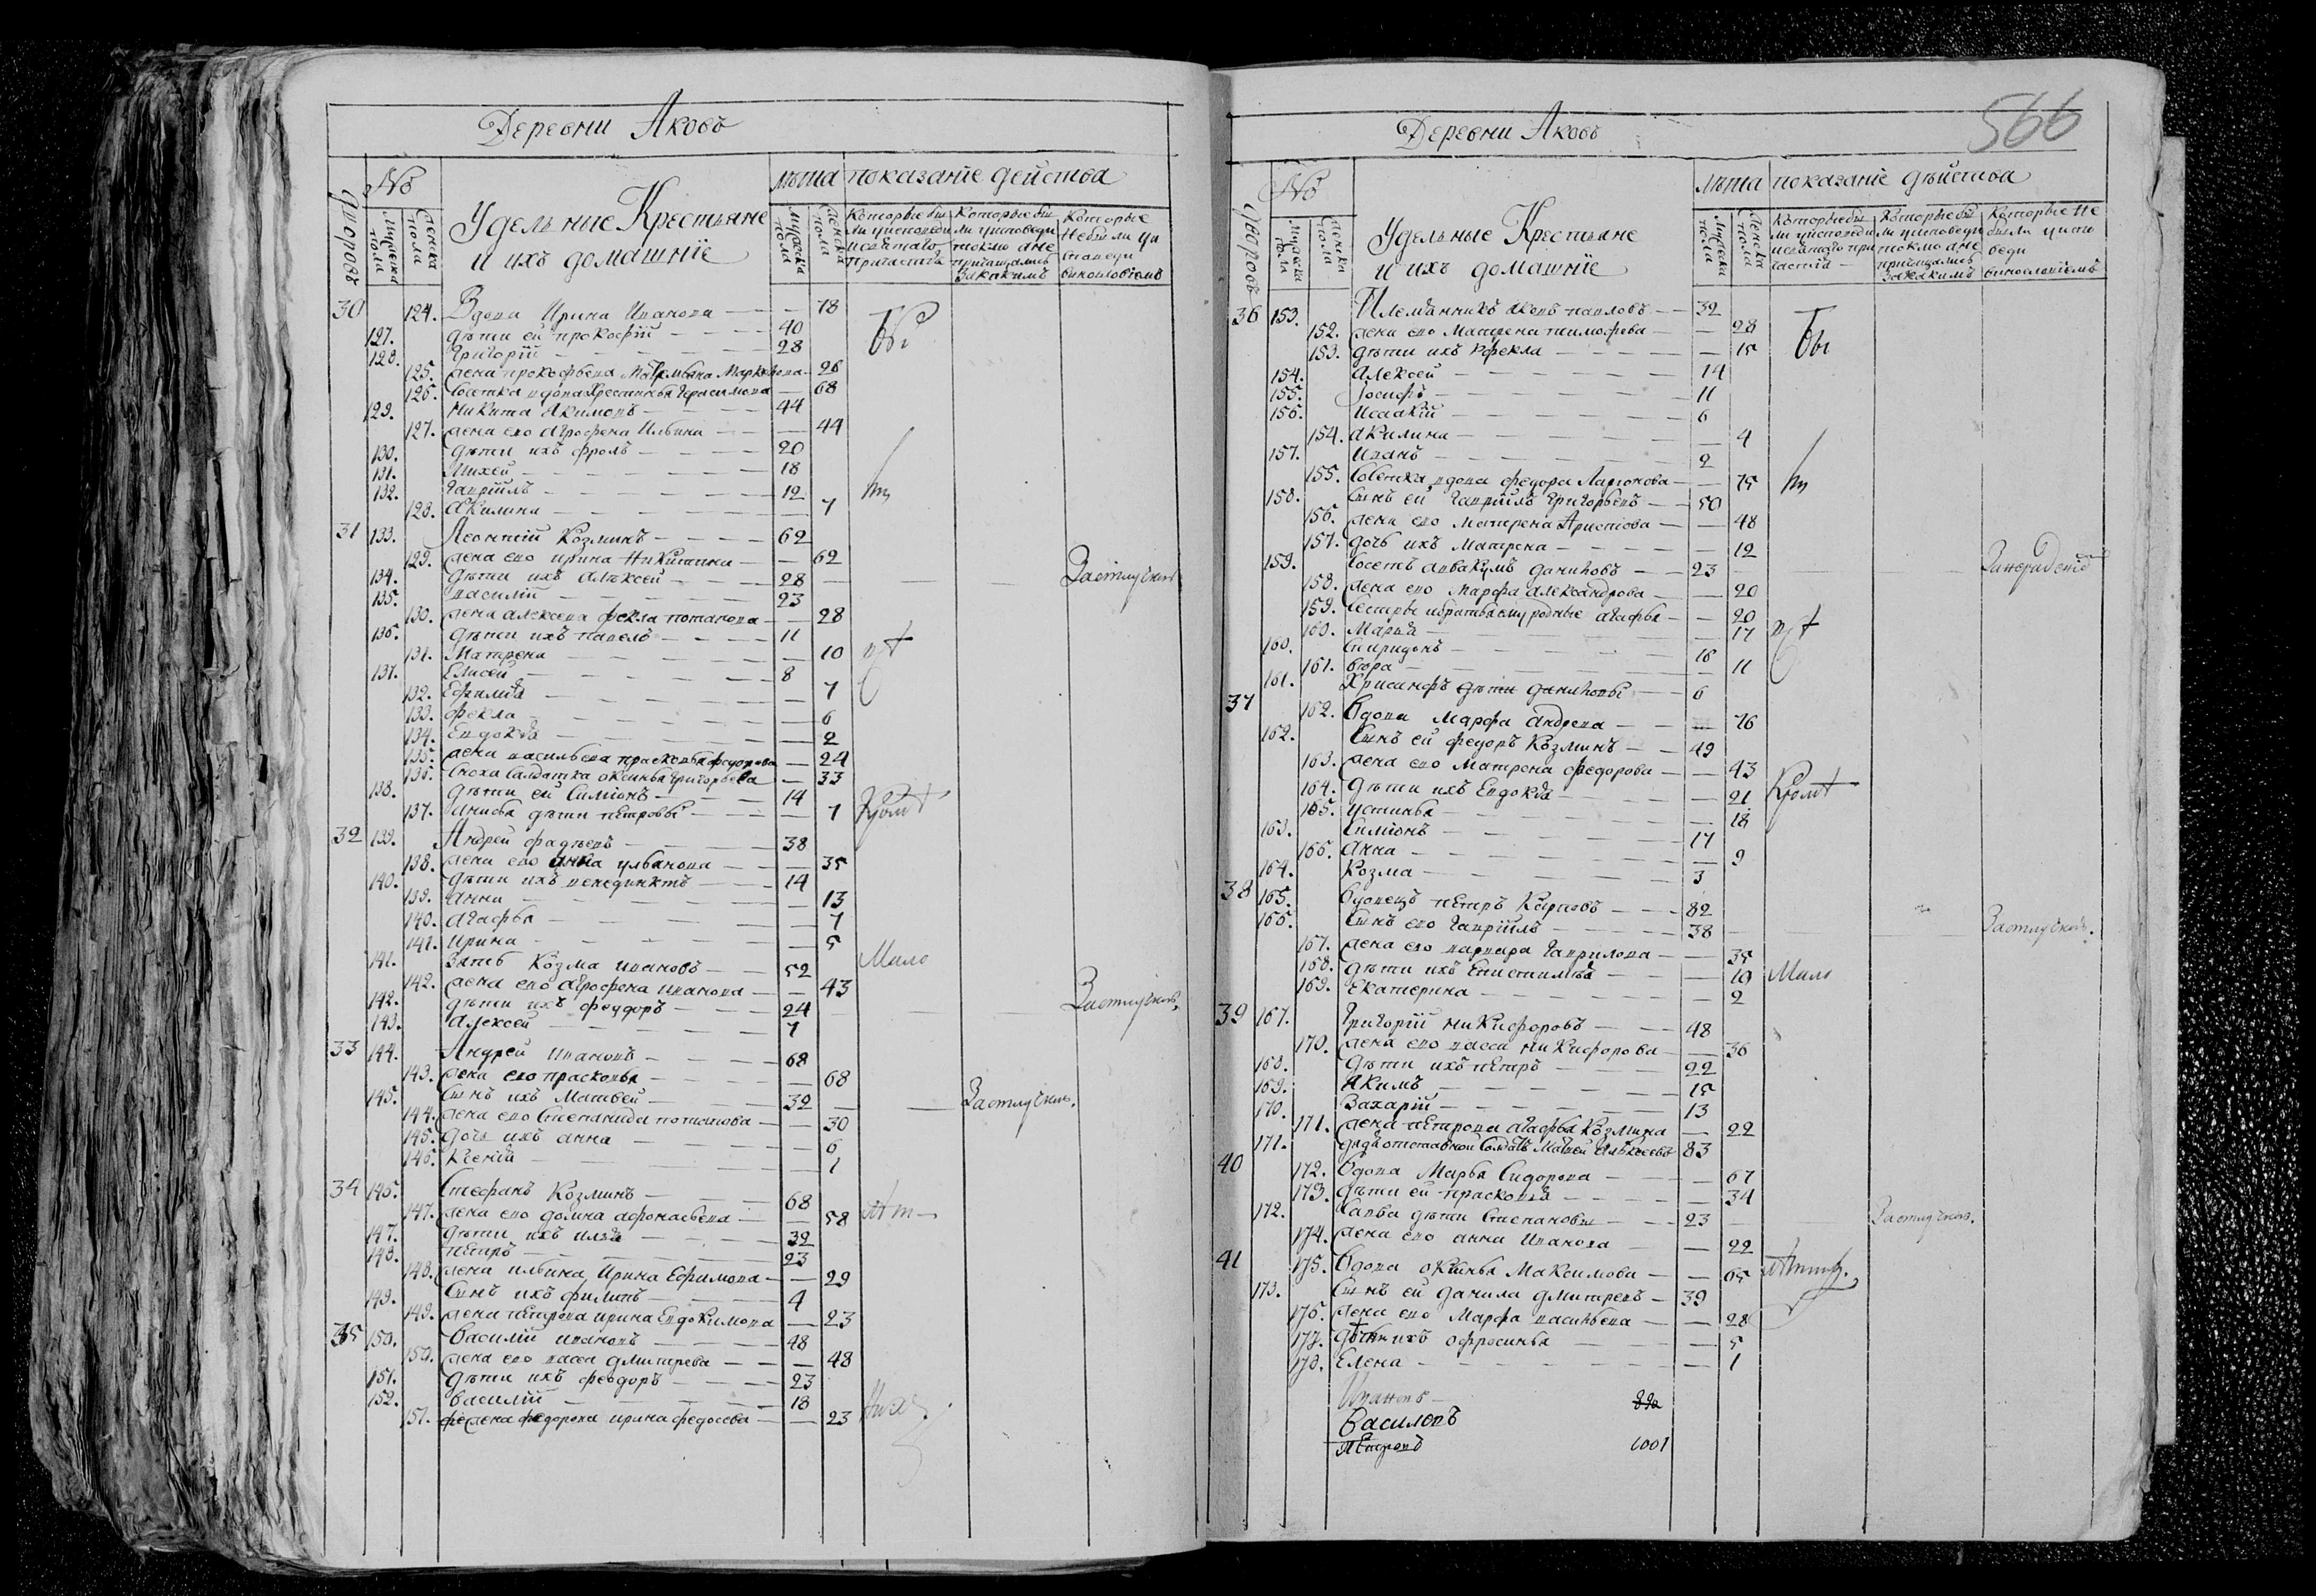 Деревни Аковъ
№
Удельные Крестьяне
и ихъ домашнїе
лѣта показанїе действа
дворовъ
мужеска пола
женска пола
мужеска пола
женска пола
Которые бы
ли уисповеди
исвятаго
причастїя
Которые бы
ли уисповеди
токмо а не
причащались
за какимъ
Которые
небыли уи
споведи
30 124. Вдова Ирина Иванова — 78 Бы
127. дѣти ей прокофїй — 40
128. Григорїй — 28
125. жена прокофьева Марки — 26
126. вдова Герасимова — 68
129. Никита Якимовъ — 44
127. жена его Агрофена Ильина — 44
130. дѣти ихъ фролъ — 20
131. Михей — 18
132. Гаврїилъ — 12
128. Акилина — 7
31 133. Леонтїй Козминъ — 62
129. жена его ирина Никитина — 62
134. дѣти ихъ алексей — 28
135. василїй — 23
130. жена алексева фекла потапова — 28
136. дѣти ихъ павелъ — 11
131. Матрена — 10
137. Елисей — 8
132. Ефимїя — 7
133. фекла — 6
134. Евдокїя — 2
135. жена васильева прасковья федорова — 24
136. сноха салдатка оксинья григорьева — 33
138. дѣти ей Симїонъ — 14
137. анисья дѣти петровы — 7
32 139. Андрей фадѣевъ — 38
138. жена его анна ульянова — 35
140. дѣти ихъ венедиктъ — 14
139. Анна — 13
140. Агафья — 7
141. Ирина — 5
141. Зять Козма ивановъ — 52 Мало
142. жена его агрофена иванова — 43
142. дѣти ихъ феодоръ — 24
143. Алексей — 7
33 144. Андрей ивановъ — 68
143. жена его прасковья — 68
145. Сынъ ихъ Матвей — 32
144. жена его Степанида потапова — 30
145. дочь ихъ анна — 6
146. Ксенїя — 1
34 146. Стефанъ Козминъ — 68
147. жена его домна афонасьева — 58
147. дѣти ихъ илья — 32
148. петръ — 23
148. жена ильина, Ирина Ефимова — 29
149. Сынъ ихъ филипъ — 4
149. жена петрова ирина Евдокимова — 23
35 150. Василїй ивановъ — 48
150. жена его васса дмитрева — 48
151. дѣти ихъ феодоръ — 23
152. василїй — 18
151. жена федорова ирина федосева — 23
566
Деревни Аковъ
№
Удельные Крестьяне
и ихъ домашнїе
лѣта показанїе дѣйства
дворовъ
мужеска пола
женска пола
мужеска пола
женска пола
Которые бы
ли уисповеди
исвятаго при
частїя
Которые бы
ли уисповеди
токмо а не
причащались
за какимъ
Которые не
были уиспо
веди
36 153. Племянникъ яковъ павловъ — 32
152. жена его Матрена тимофева — 28 Бы
153. дѣти ихъ фекла — 15
154. Алексей — 14
155. Іосифъ — 11
156. Исаакїй — 6
154. Акилина — 4
157. Иванъ — 2
155. вдова федора Ларионова — 75
158. Сынъ ей Гаврїилъ Григорьевъ — 50
156. жена его матрена Аристова — 48
157. дочь ихъ Матрена — 12
159. аввакумъ даниловъ — 23
158. жена его марфа александрова — 20
159. Сестры ибратья ему родные агафья — 20
160. Марья — 17
160. Спиридонъ — 16
161. — 11
161. Хрисанфъ дѣти даниловы — 6
37 162. Вдова Марфа андрева — 76
162. Сынъ ей федоръ Козминъ — 49
163. жена его Матрена федорова — 43
164. дѣти ихъ Евдокїя — 21
165. устинья — 18
163. Симїонъ — 17
166. Анна — 9
164. Козма — 3
38 165. Вдовецъ петръ Карповъ — 82
166. Сынъ его Гаврїилъ — 38
167. жена его варвара Гаврилова — 35
168. дѣти ихъ Епистимїя — 19 Мало
169. Екатерина — 2
39 167. Григорїй никифоровъ — 48
170. жена его васса никифорова — 36
168. дѣти ихъ петръ — 22
169. Якимъ — 15
170. Захарїй — 13
171. жена петрова агафья Козмина — 22
171. отставной Солдатъ Матвей Алексеевъ 83
40 172. Вдова Марья Сидорова — 67
173. дѣти ей прасковья — 34
172. Савва дѣти Степановы — 23
174. жена его анна Иванова — 22
41 175. Вдова оксинья Максимова — 65
173. Сынъ ей данила дмитревъ — 39
176. жена его Марфа васильева — 28
177. дѣти ихъ офросинья — 5
178. Елена — 1
Ивановъ
Василевъ
Петровъ 1001